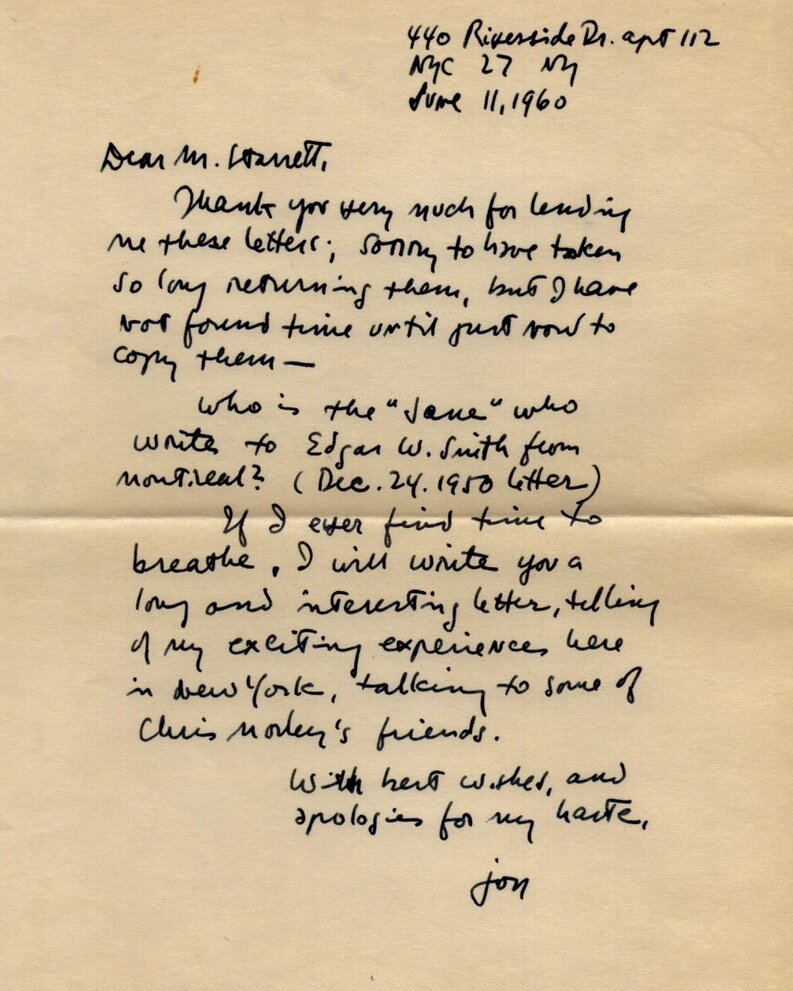 440 Riverside Dr. apt 112
NYC 27 NY
June 11, 1960
Dear Mr. Starrett,
Thank you very much for lending
me these letters; sorry to have taken
so long returning them, but I have
not found time until just now to
copy them—
Who is the "Jane" who
writes to Edgar W. Smith from
Montreal? (Dec. 24. 1950 letter)
If I ever find time to
breathe, I will write you a
long and interesting letter, telling
of my exciting experiences here
in New York, talking to some of
Chris Morley's friends.
With best wishes, and
apologies for my haste,
Jon